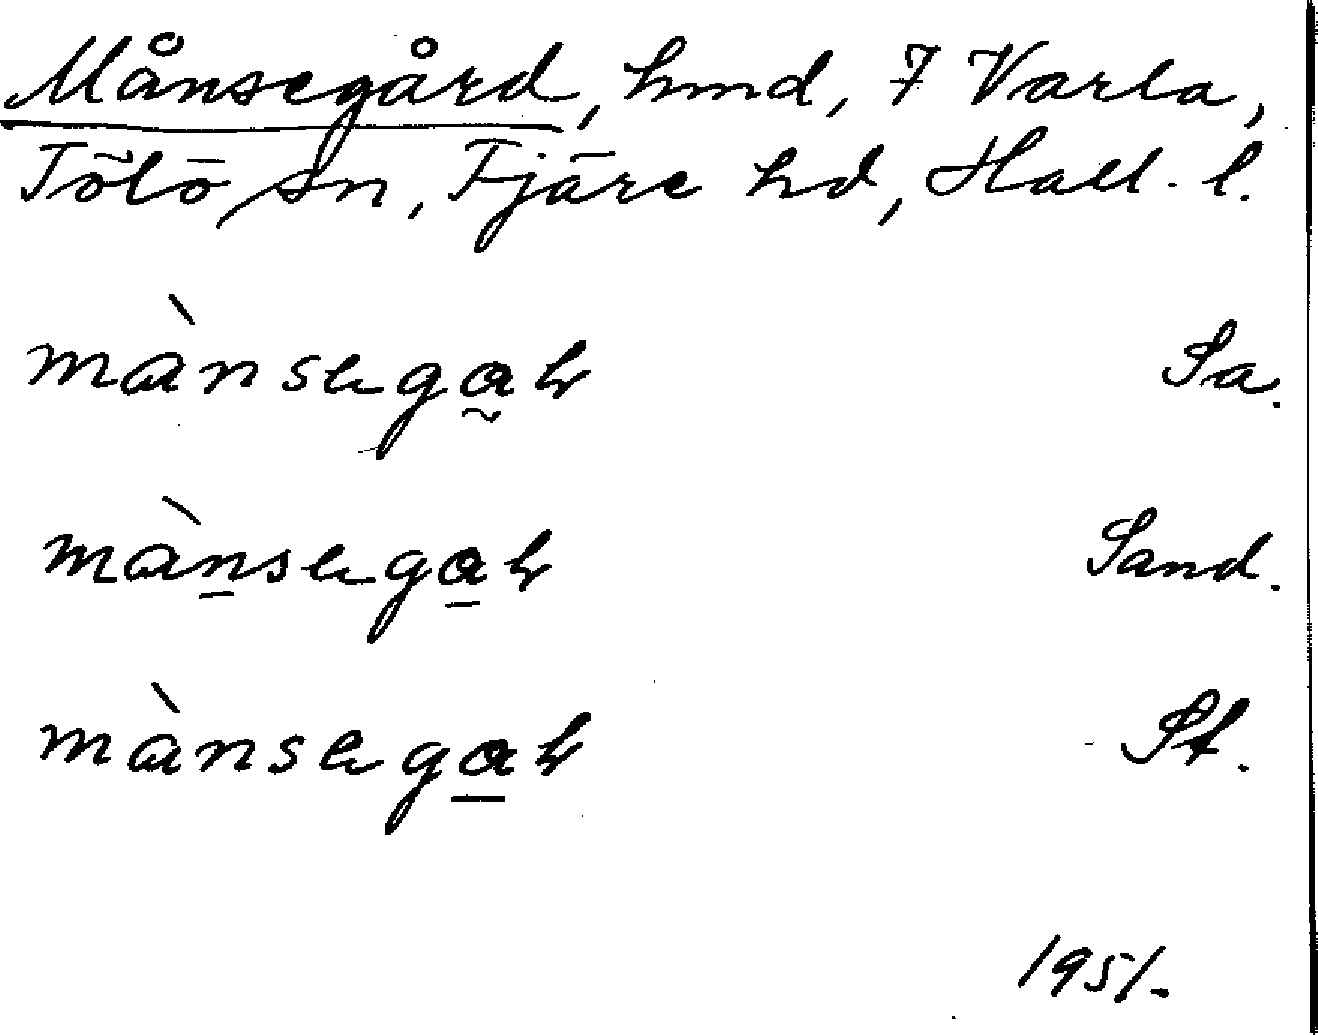 Månsegård, hmd, 7 Varla,
Tölö sn, Fjäre hd, Hall. l.
mànsegar Sa.
mànsegar Sand.
mànsegar St.
1951.